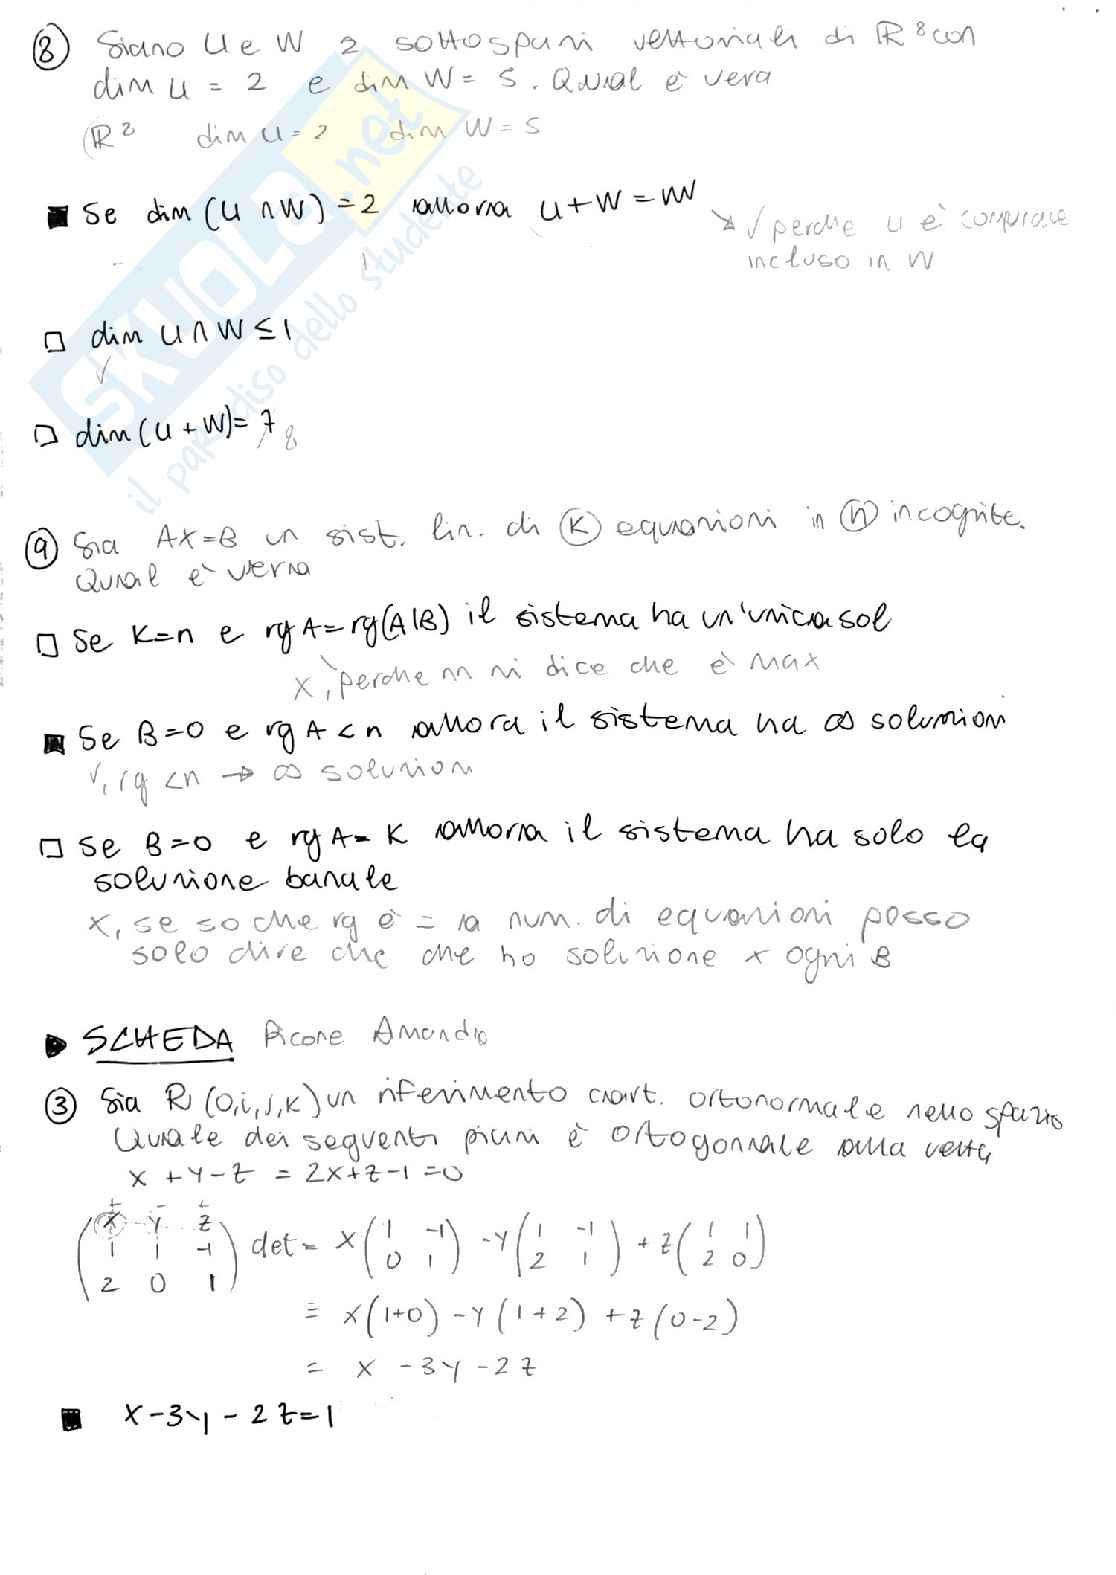 ⑧ Siano U e W 2 sottospazi vettoriali di ℝ⁸ con
dim U = 2 e dim W = 5. Qual è vera
ℝ⁸ dim U = 2 dim W = 5
■ Se dim (U ∩ W) = 2 allora U + W = W
↘ √ perche U è
incluso in W
□ dim U ∩ W ≤ 1
√
□ dim (U + W) = 7 8
SKUOLA.net
il paradiso dello studente
⑨ Sia AX=B un sist. lin. di Ⓚ equazioni in ⓝ incognite.
Qual è vera
□ Se K=n e rg A = rg(A|B) il sistema ha un'unica sol
X, perche dice che è max
■ Se B=0 e rg A < n allora il sistema ha ∞ soluzioni
√, rg <n → ∞ soluzioni
□ Se B=0 e rg A = K allora il sistema ha solo la
soluzione banale
X, se so che rg è = a num. di equazioni posso
solo dire che che ho soluzione x ogni B
▶ SCHEDA Picone Amandio
③ Sia R (O,i,j,k) un riferimento cart. ortonormale nello spazio
Quale dei seguenti piani è ortogonale alla retta
x + y - z = 2x + z - 1 = 0
+ - +
(x y z
1 1 -1
2 0 1) det = x(1 -1 0 1) - y(1 -1 2 1) + z(1 1 2 0)
= x(1+0) - y(1+2) + z(0-2)
= x - 3y - 2z
■ x - 3y - 2z = 1